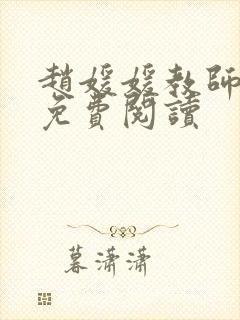 趙媛媛教師
免費閱讀
暮瀟瀟